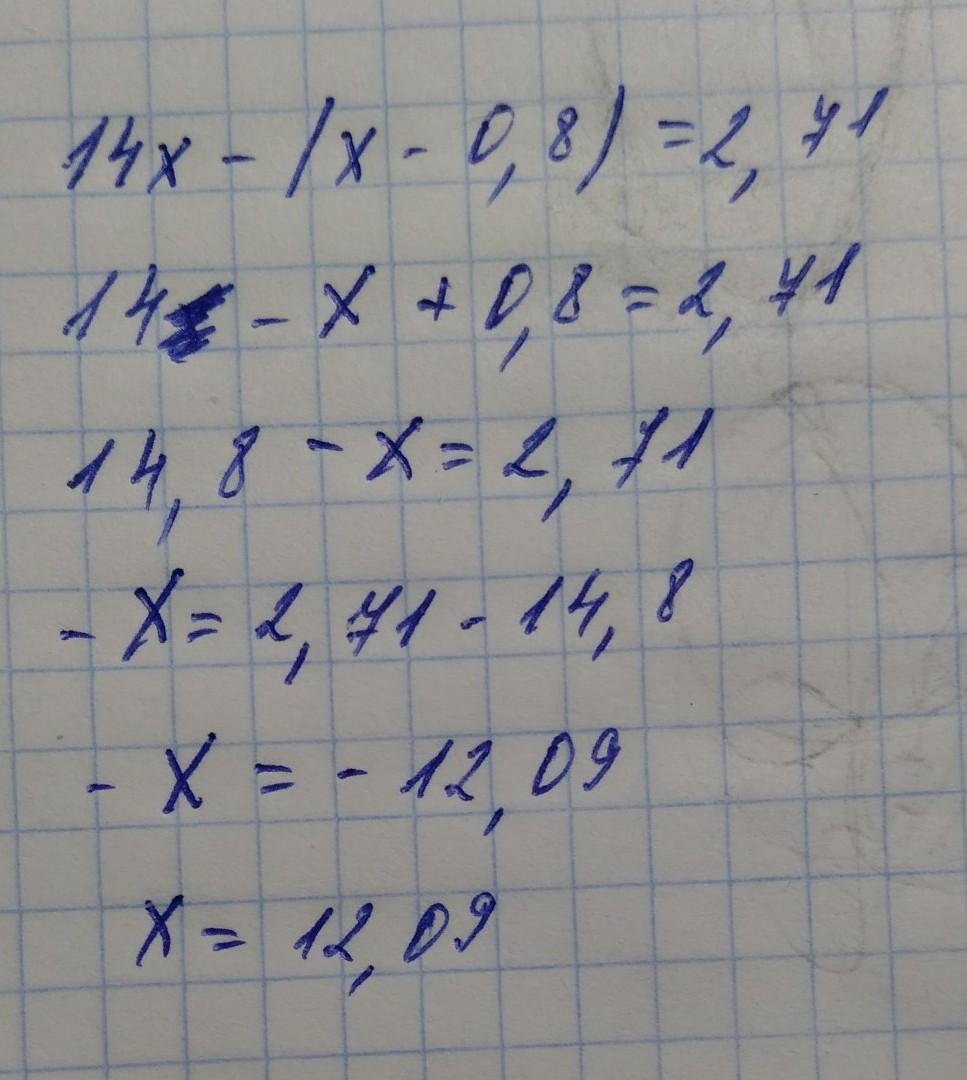 14x - (x - 0,8) = 2,71
14 - x + 0,8 = 2,71
14,8 - x = 2,71
- x = 2,71 - 14,8
- x = - 12,09
x = 12,09